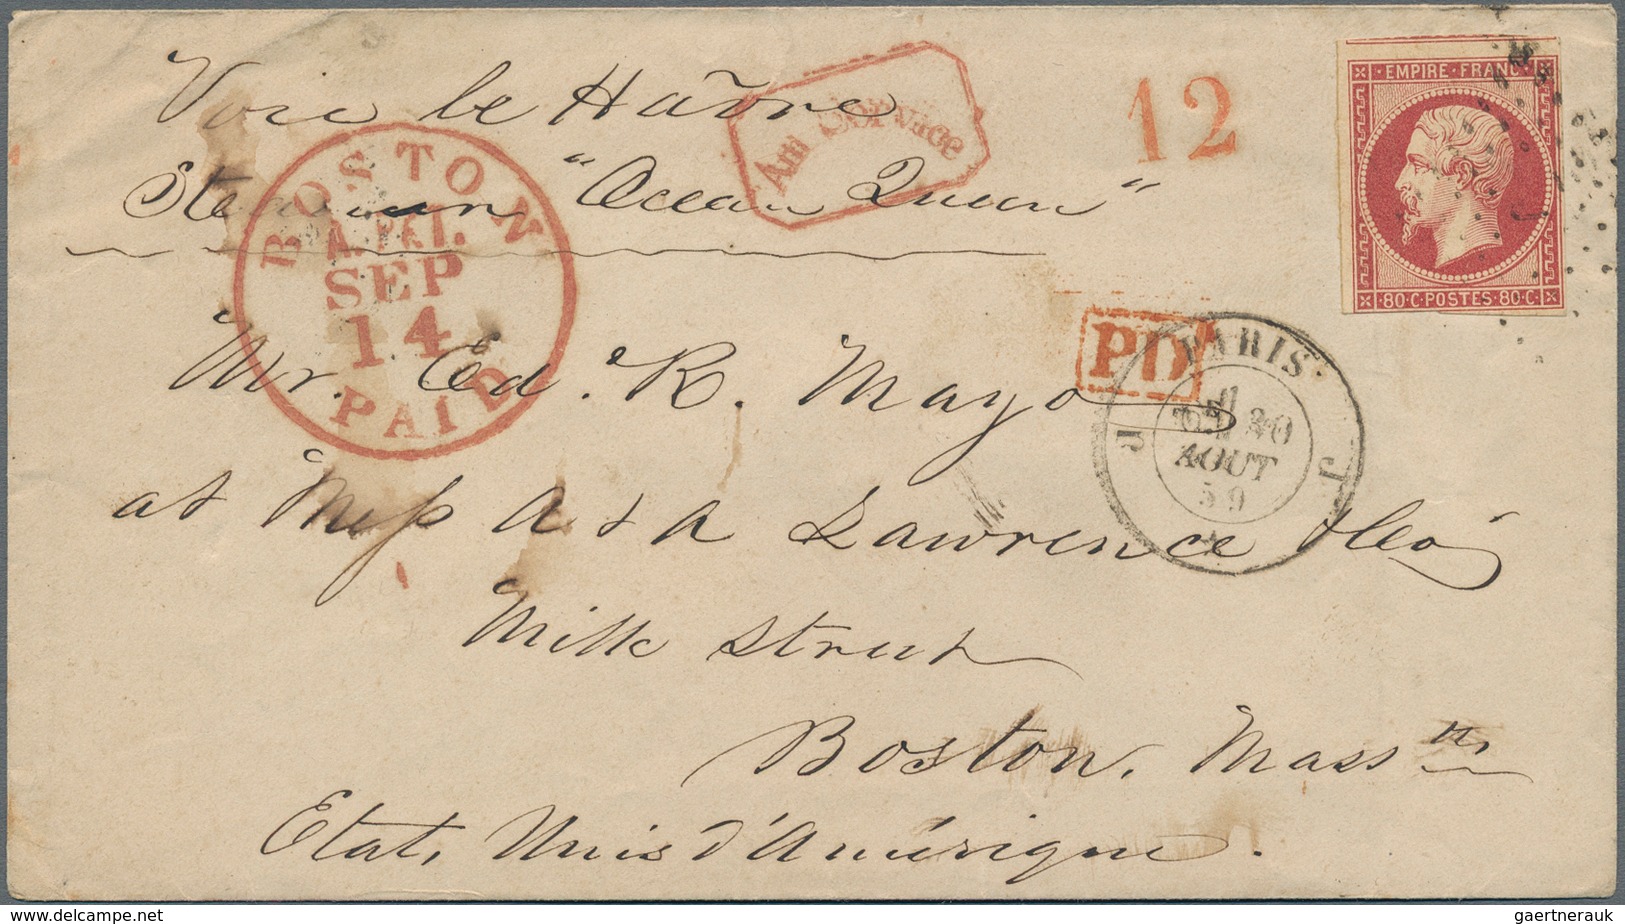 Voie le Hâvre
Steamer "Ocean Queen"
Am Service
12
EMPIRE · FRANC
80·C·POSTES·80·C
BOSTON
A. PKT.
SEP
14
PAID
PD
PARIS
AOUT
59
J
Mr. Ed. R. Mayo
at Mess A & A Lawrence &Co
Milk Street
Boston. Mass
Etats Unis d'Amérique.
delcampe.net
gaertnerauk